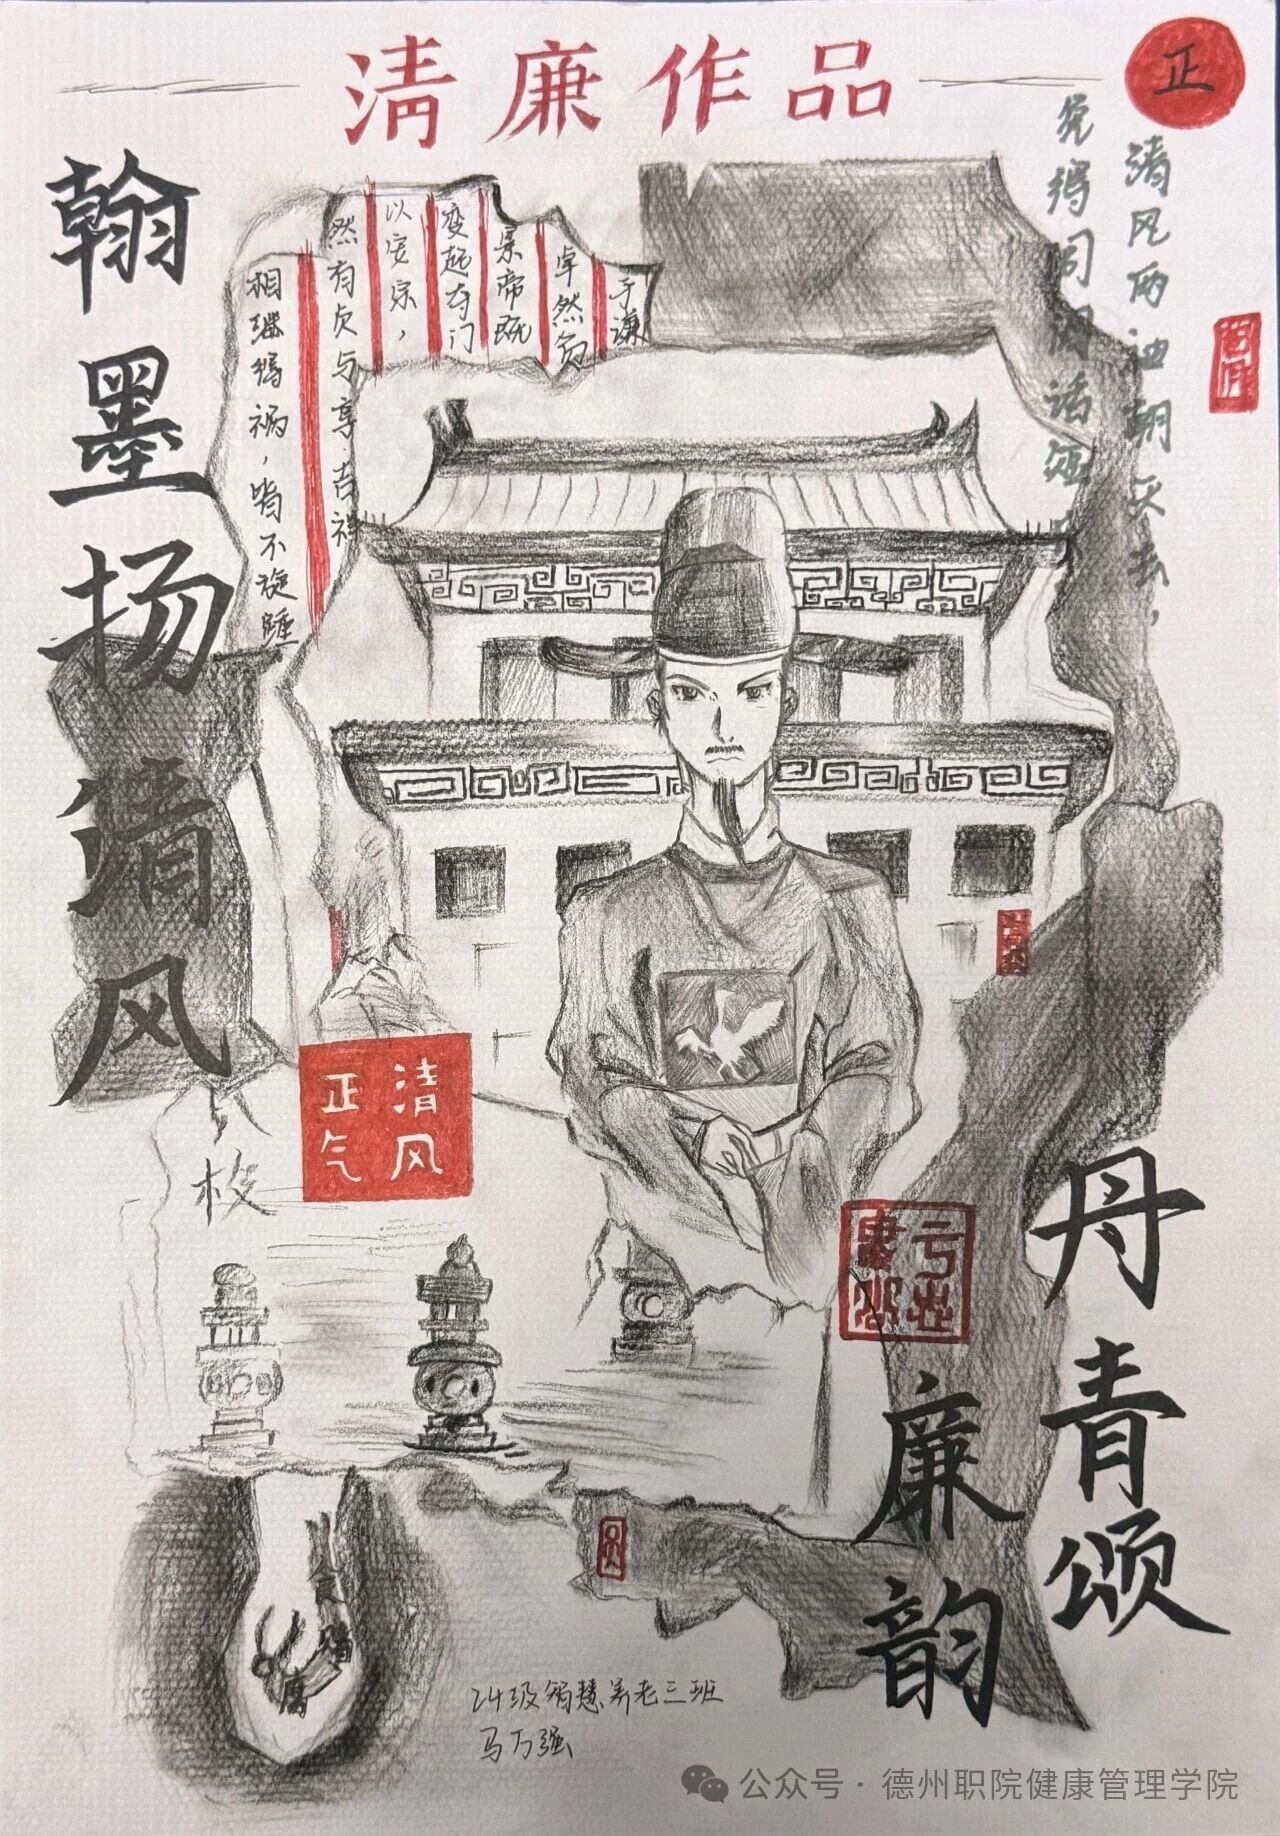 清廉作品
正
清风两袖朝天去，
免得闾阎话短
翰墨扬清风
于谦
卓然负
景帝既
变起夺门
以安宗，
然有贞与享、吉祥
相继得祸，皆不旋踵
清风
正气
枚
丹青颂
廉韵
腐
24级智慧养老三班
马万强
公众号·德州职院健康管理学院